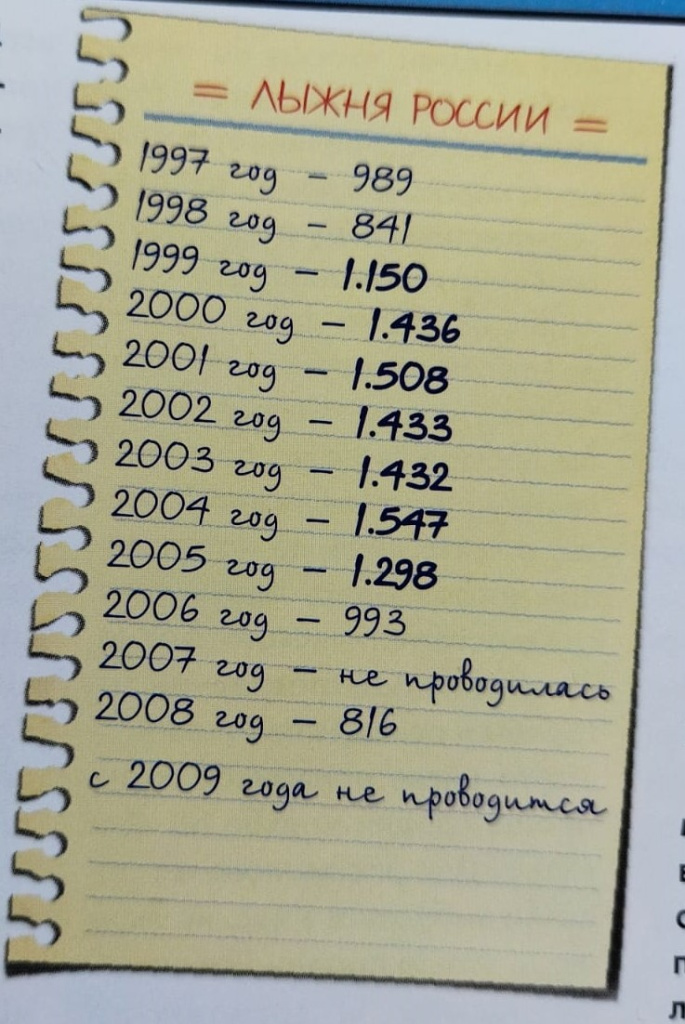 = ЛЫЖНЯ РОССИИ =
1997 год – 989
1998 год – 841
1999 год – 1.150
2000 год – 1.436
2001 год – 1.508
2002 год – 1.433
2003 год – 1.432
2004 год – 1.547
2005 год – 1.298
2006 год – 993
2007 год – не проводилась
2008 год – 816
с 2009 года не проводится